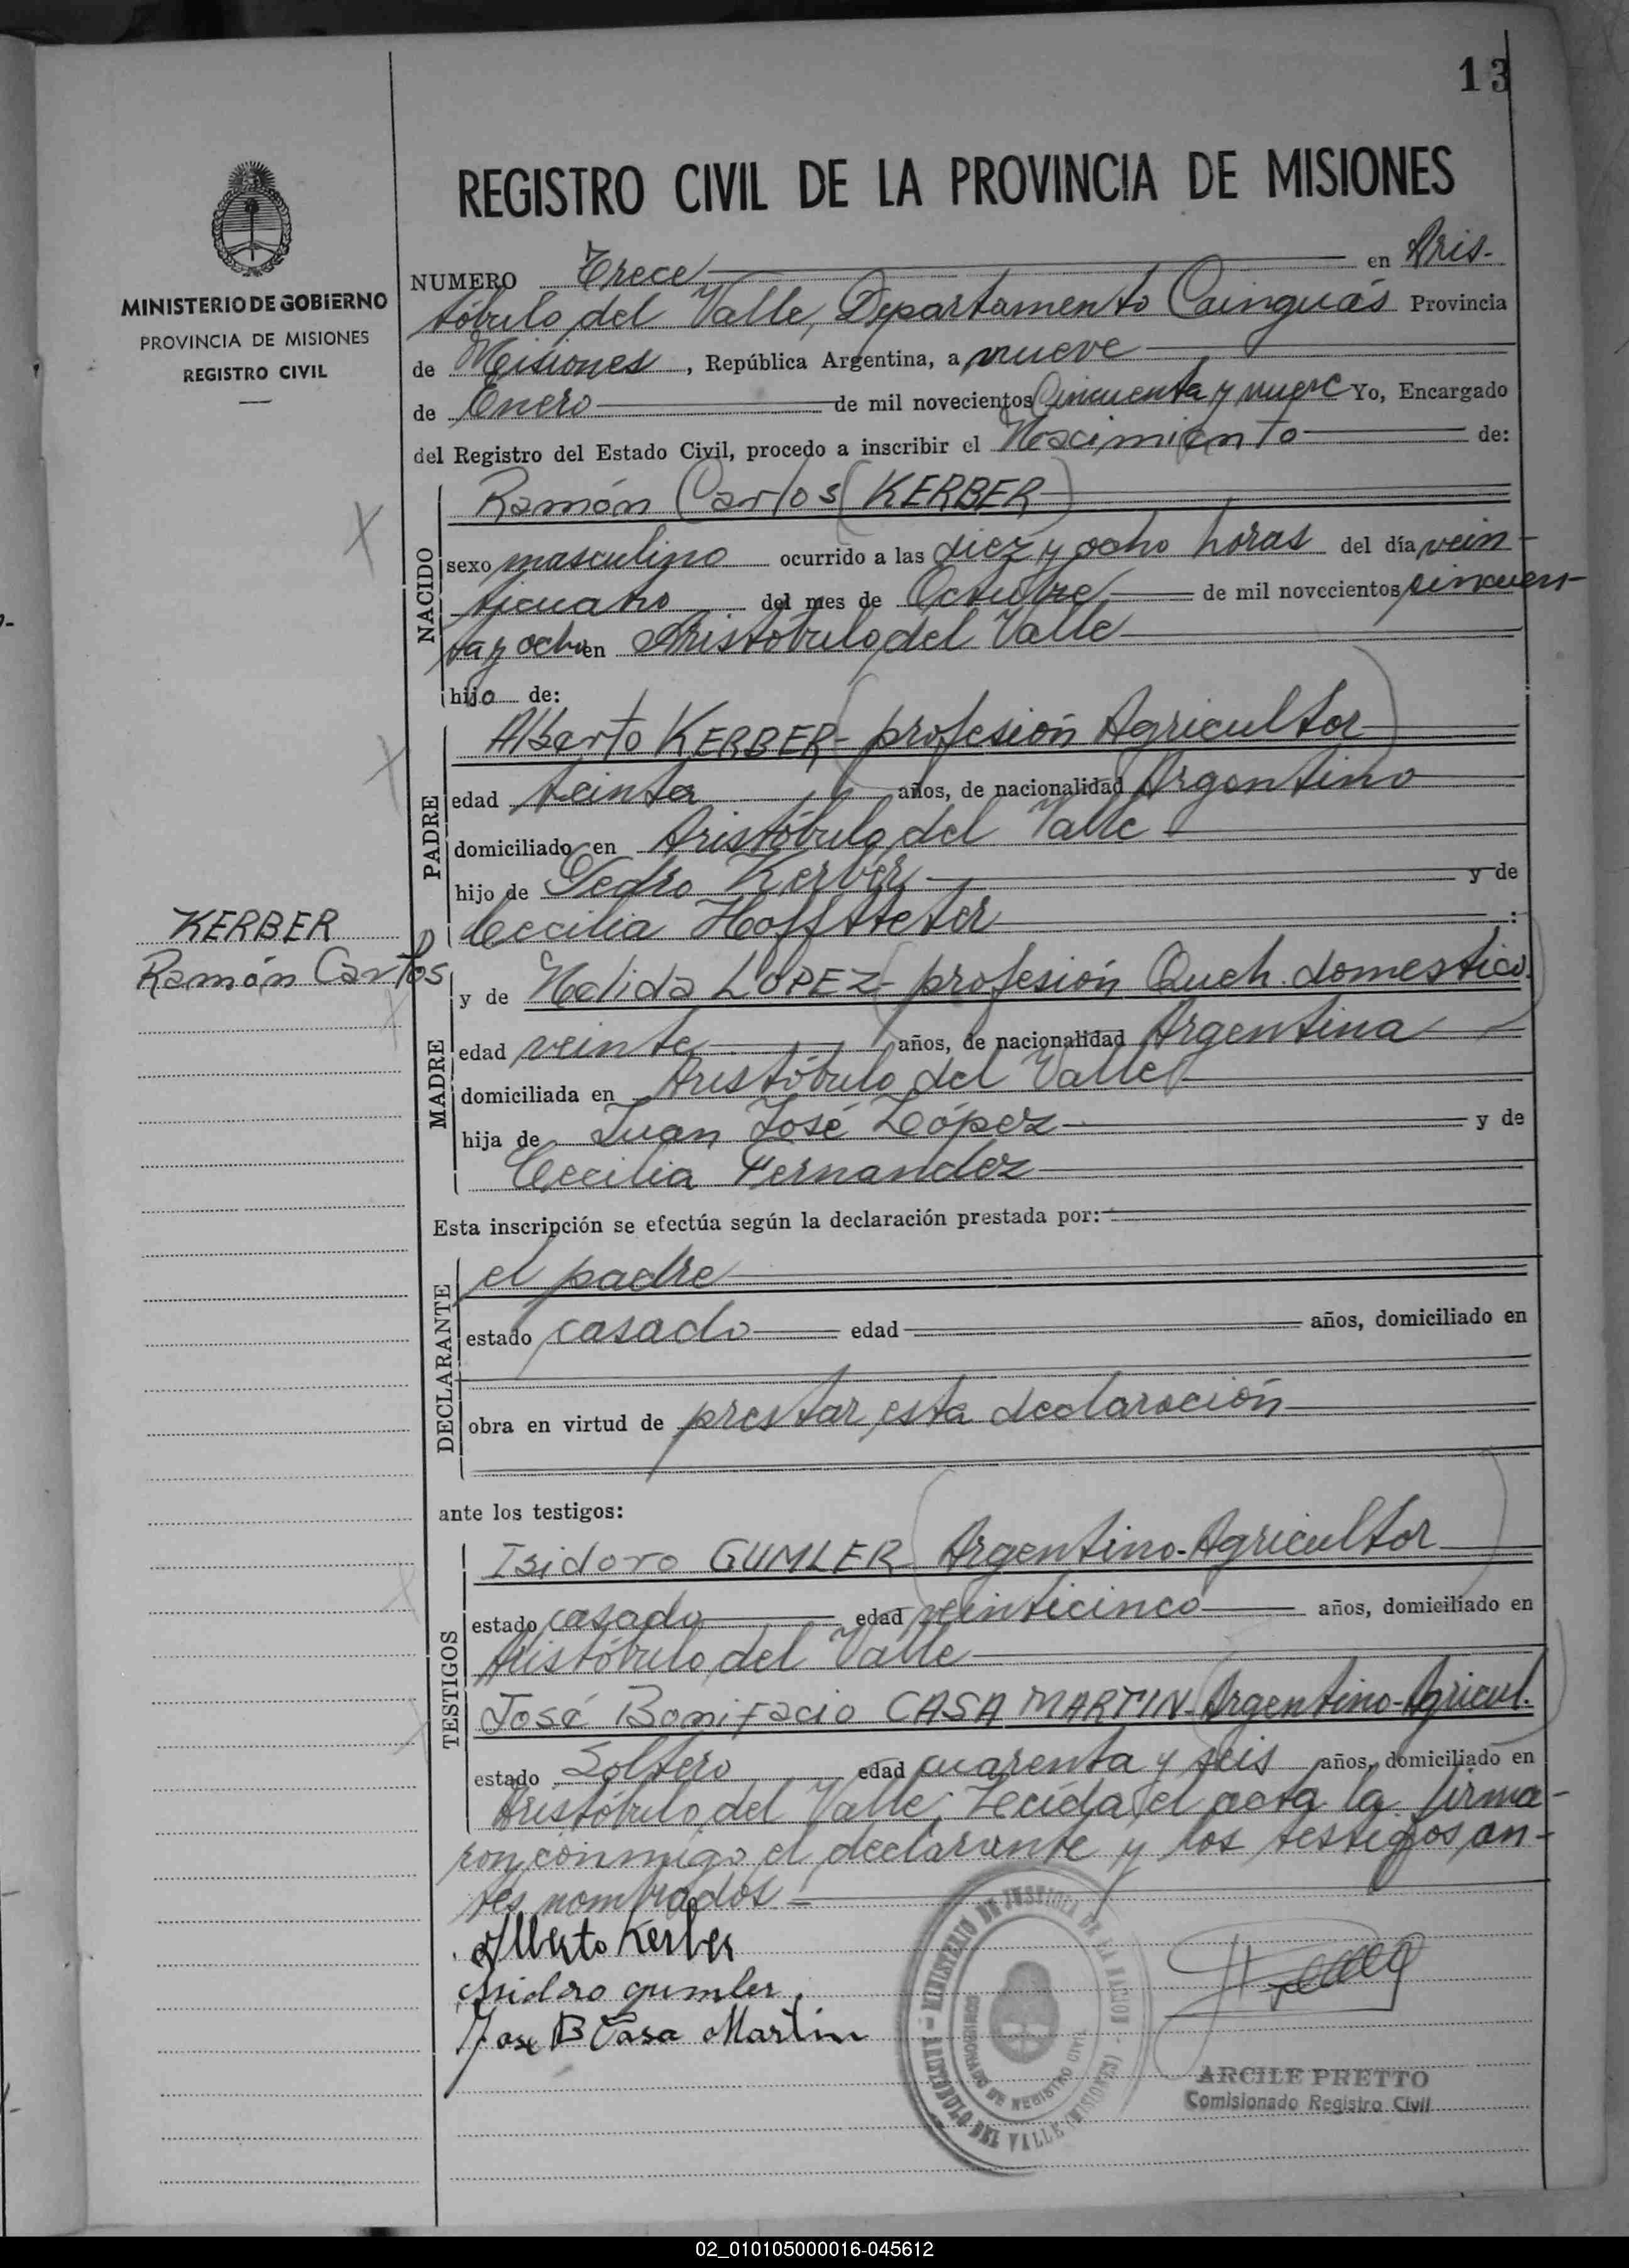 13
MINISTERIO DE GOBIERNO
PROVINCIA DE MISIONES
REGISTRO CIVIL
REGISTRO CIVIL DE LA PROVINCIA DE MISIONES
NUMERO Trece en Aris-
tóbulo del Valle, Departamento Cainguás Provincia
de Misiones, República Argentina, a nueve
de Enero de mil novecientos Cincuenta y nueve Yo, Encargado
del Registro del Estado Civil, procedo a inscribir el Nacimiento de:
NACIDO
Ramón Carlos (KERBER)
sexo masculino ocurrido a las diez y ocho horas del día vein-
ticuatro del mes de Octubre de mil novecientos cincuen-
ta y ocho en Aristóbulo del Valle
hijo de:
PADRE
Alberto KERBER - (profesión Agricultor)
edad teinta años, de nacionalidad Argentino
domiciliado en Aristóbulo del Valle
hijo de Pedro Kerber y de
Cecilia Hoffsteter :
KERBER
Ramón Carlos
MADRE
y de Nelida LOPEZ - (profesión Queh. domestico.)
edad veinte años, de nacionalidad Argentina
domiciliada en Aristóbulo del Valle
hija de Juan José López y de
Cecilia Fernandez
Esta inscripción se efectúa según la declaración prestada por:
DECLARANTE
el padre
estado casado edad años, domiciliado en
obra en virtud de prestar esta declaración
ante los testigos:
TESTIGOS
Isidoro GUMLER (Argentino-Agricultor)
estado casado edad veinticinco años, domiciliado en
Aristóbulo del Valle
José Bonifacio CASA MARTIN - (Argentino-Agricul.)
estado Soltero edad cuarenta y seis años, domiciliado en
Aristóbulo del Valle; Leída el acta la firma-
ron conmigo el declarante y los testigos an-
tes nombrados.
Alberto Kerber
Isidoro gumler
Jose B Casa Martin
MINISTERIO DE JUSTICIA DE LA NACION - ARISTOBULO DEL VALLE (MISIONES)
COMISIONADO DE REGISTRO CIVIL
ARCILE PRETTO
Comisionado Registro Civil
02_010105000016-045612